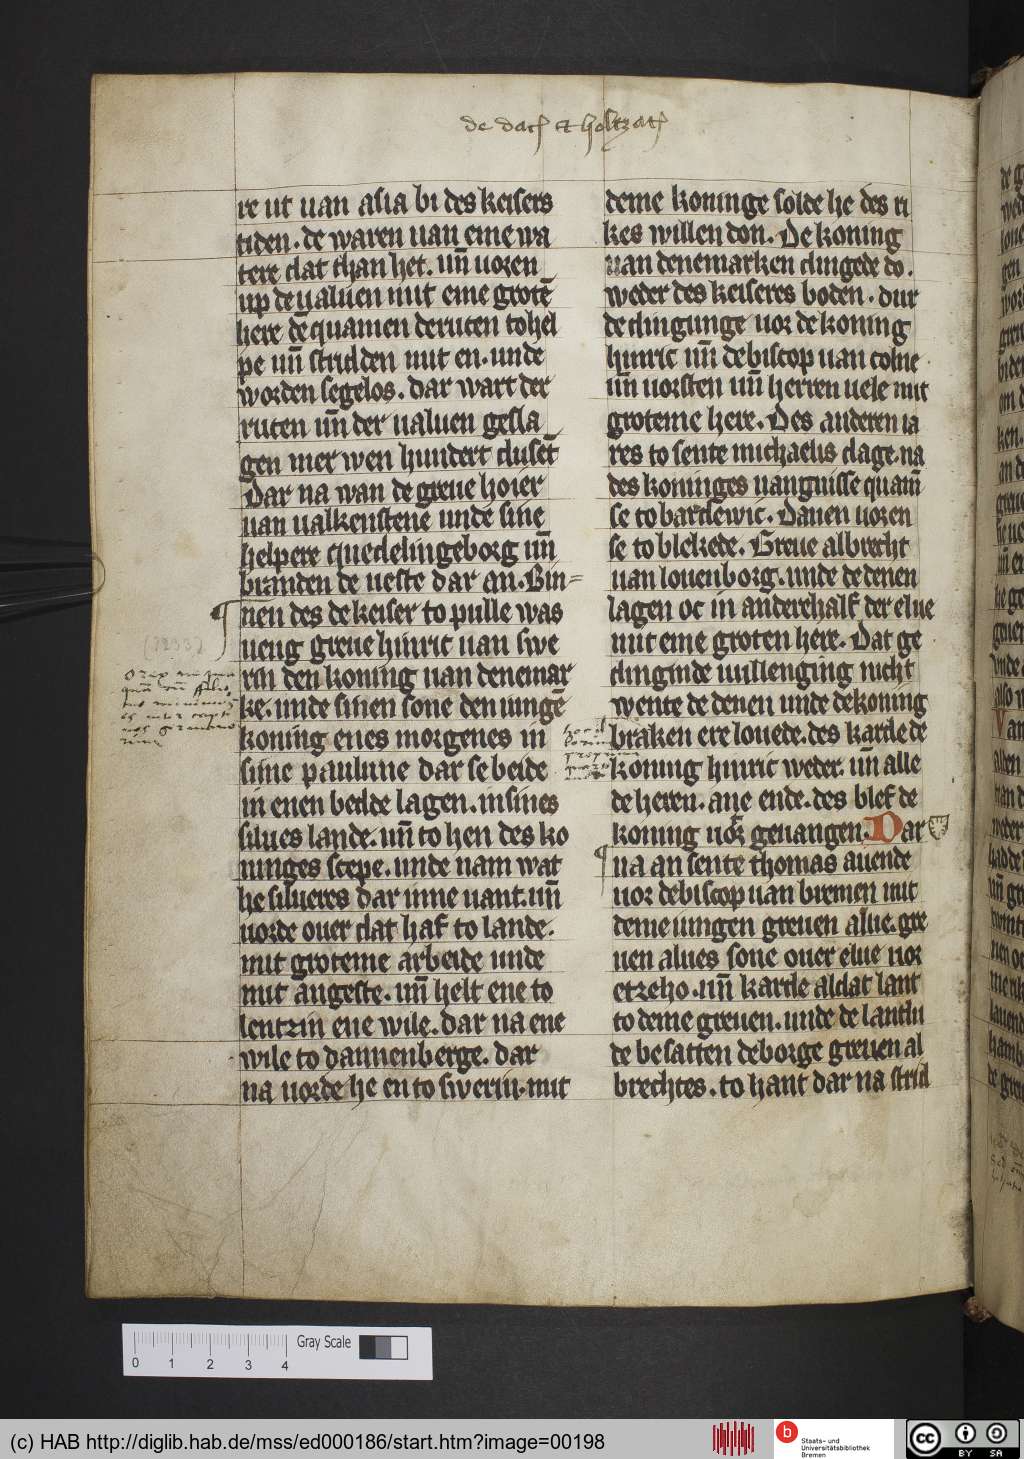 de dac et holtzac
re ut uan asia bi des keisers
tiden. de waren uan eme wa
tere dat than het. un̄ uoren
up de ualuen mit eme grotē
here dē quamen de ruten to hel
pe un̄ stridden mit en. unde
worden segelos. dar wart der
ruten un̄ der ualuen gesla
gen mer wen hundert dusēt
Dar na wan de greue hoier
uan ualkenstene unde sine
helpere quedelingeborg un̄
branden de ueste dar an. Bin=
nen des de keiser to pulle was
ueng greue hinric uan swe
rin den koning uan denemar
ke. unde sinen sone den iungē
koning enes morgenes in
sime paulune dar se beide
in enen bedde lagen. in sines
silues lande. un̄ to hen des ko
ninges scepe. unde nam wat
he silueres dar inne uant. un̄
uorde ouer dat haf to lande.
mit groteme arbeide unde
mit angeste. un̄ helt ene to
lentzin ene wile. dar na ene
wile to dannenberge. dar
na uorde he en to swerin. mit
deme koninge solde he des ri
kes willen don. De koning
uan denemarken dingede do.
weder des keiseres boden. dur
de dingunge uor de koning
hinric un̄ de biscop uan colne
un̄ uorsten un̄ herren uele mit
groteme here. Des anderen ia
res to sente michaelis dage. na
des koninges uangnisse quam̄
se to bardewic. Dauen uoren
se to blekede. Greue albrecht
uan louenborg. unde de denen
lagen oc in anderehalf der elue
mit eme groten here. Dat ge
dinginde uullenging nicht
wente de denen unde de koning
braken ere louede. des karde de
koning hinric weder. un̄ alle
de heren. ane ende. des blef de
koning uor geuangen. Dar
na an sente thomas auende
uor de biscop uan bremen mit
deme iungen greuen alue. gre
uen alues sone ouer elue uor
etzeho. un̄ karde al dat lant
to deme greuen. unde de lantlu
de besatten de borge greuen al
brechtes. to hant dar na strid
0 1 2 3 4
Gray Scale
(c) HAB http://diglib.hab.de/mss/ed000186/start.htm?image=00198
Staats- und
Universitätsbibliothek
Bremen
cc BY SA